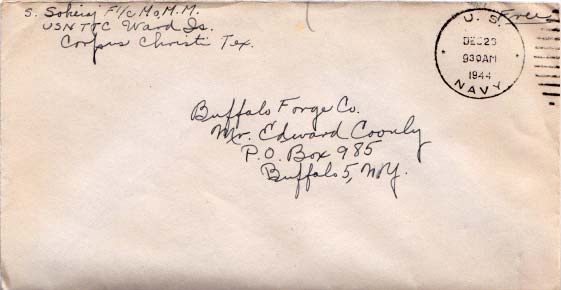 S. Soheraj F1/c Mo.M.M.
USNTTC Ward Is.
Corpus Christi Tex.
Free
U. S.
DEC 23
930 AM
1944
NAVY
Buffalo Forge Co.
Mr. Edward Coonly
P.O. Box 985
Buffalo 5, N.Y.